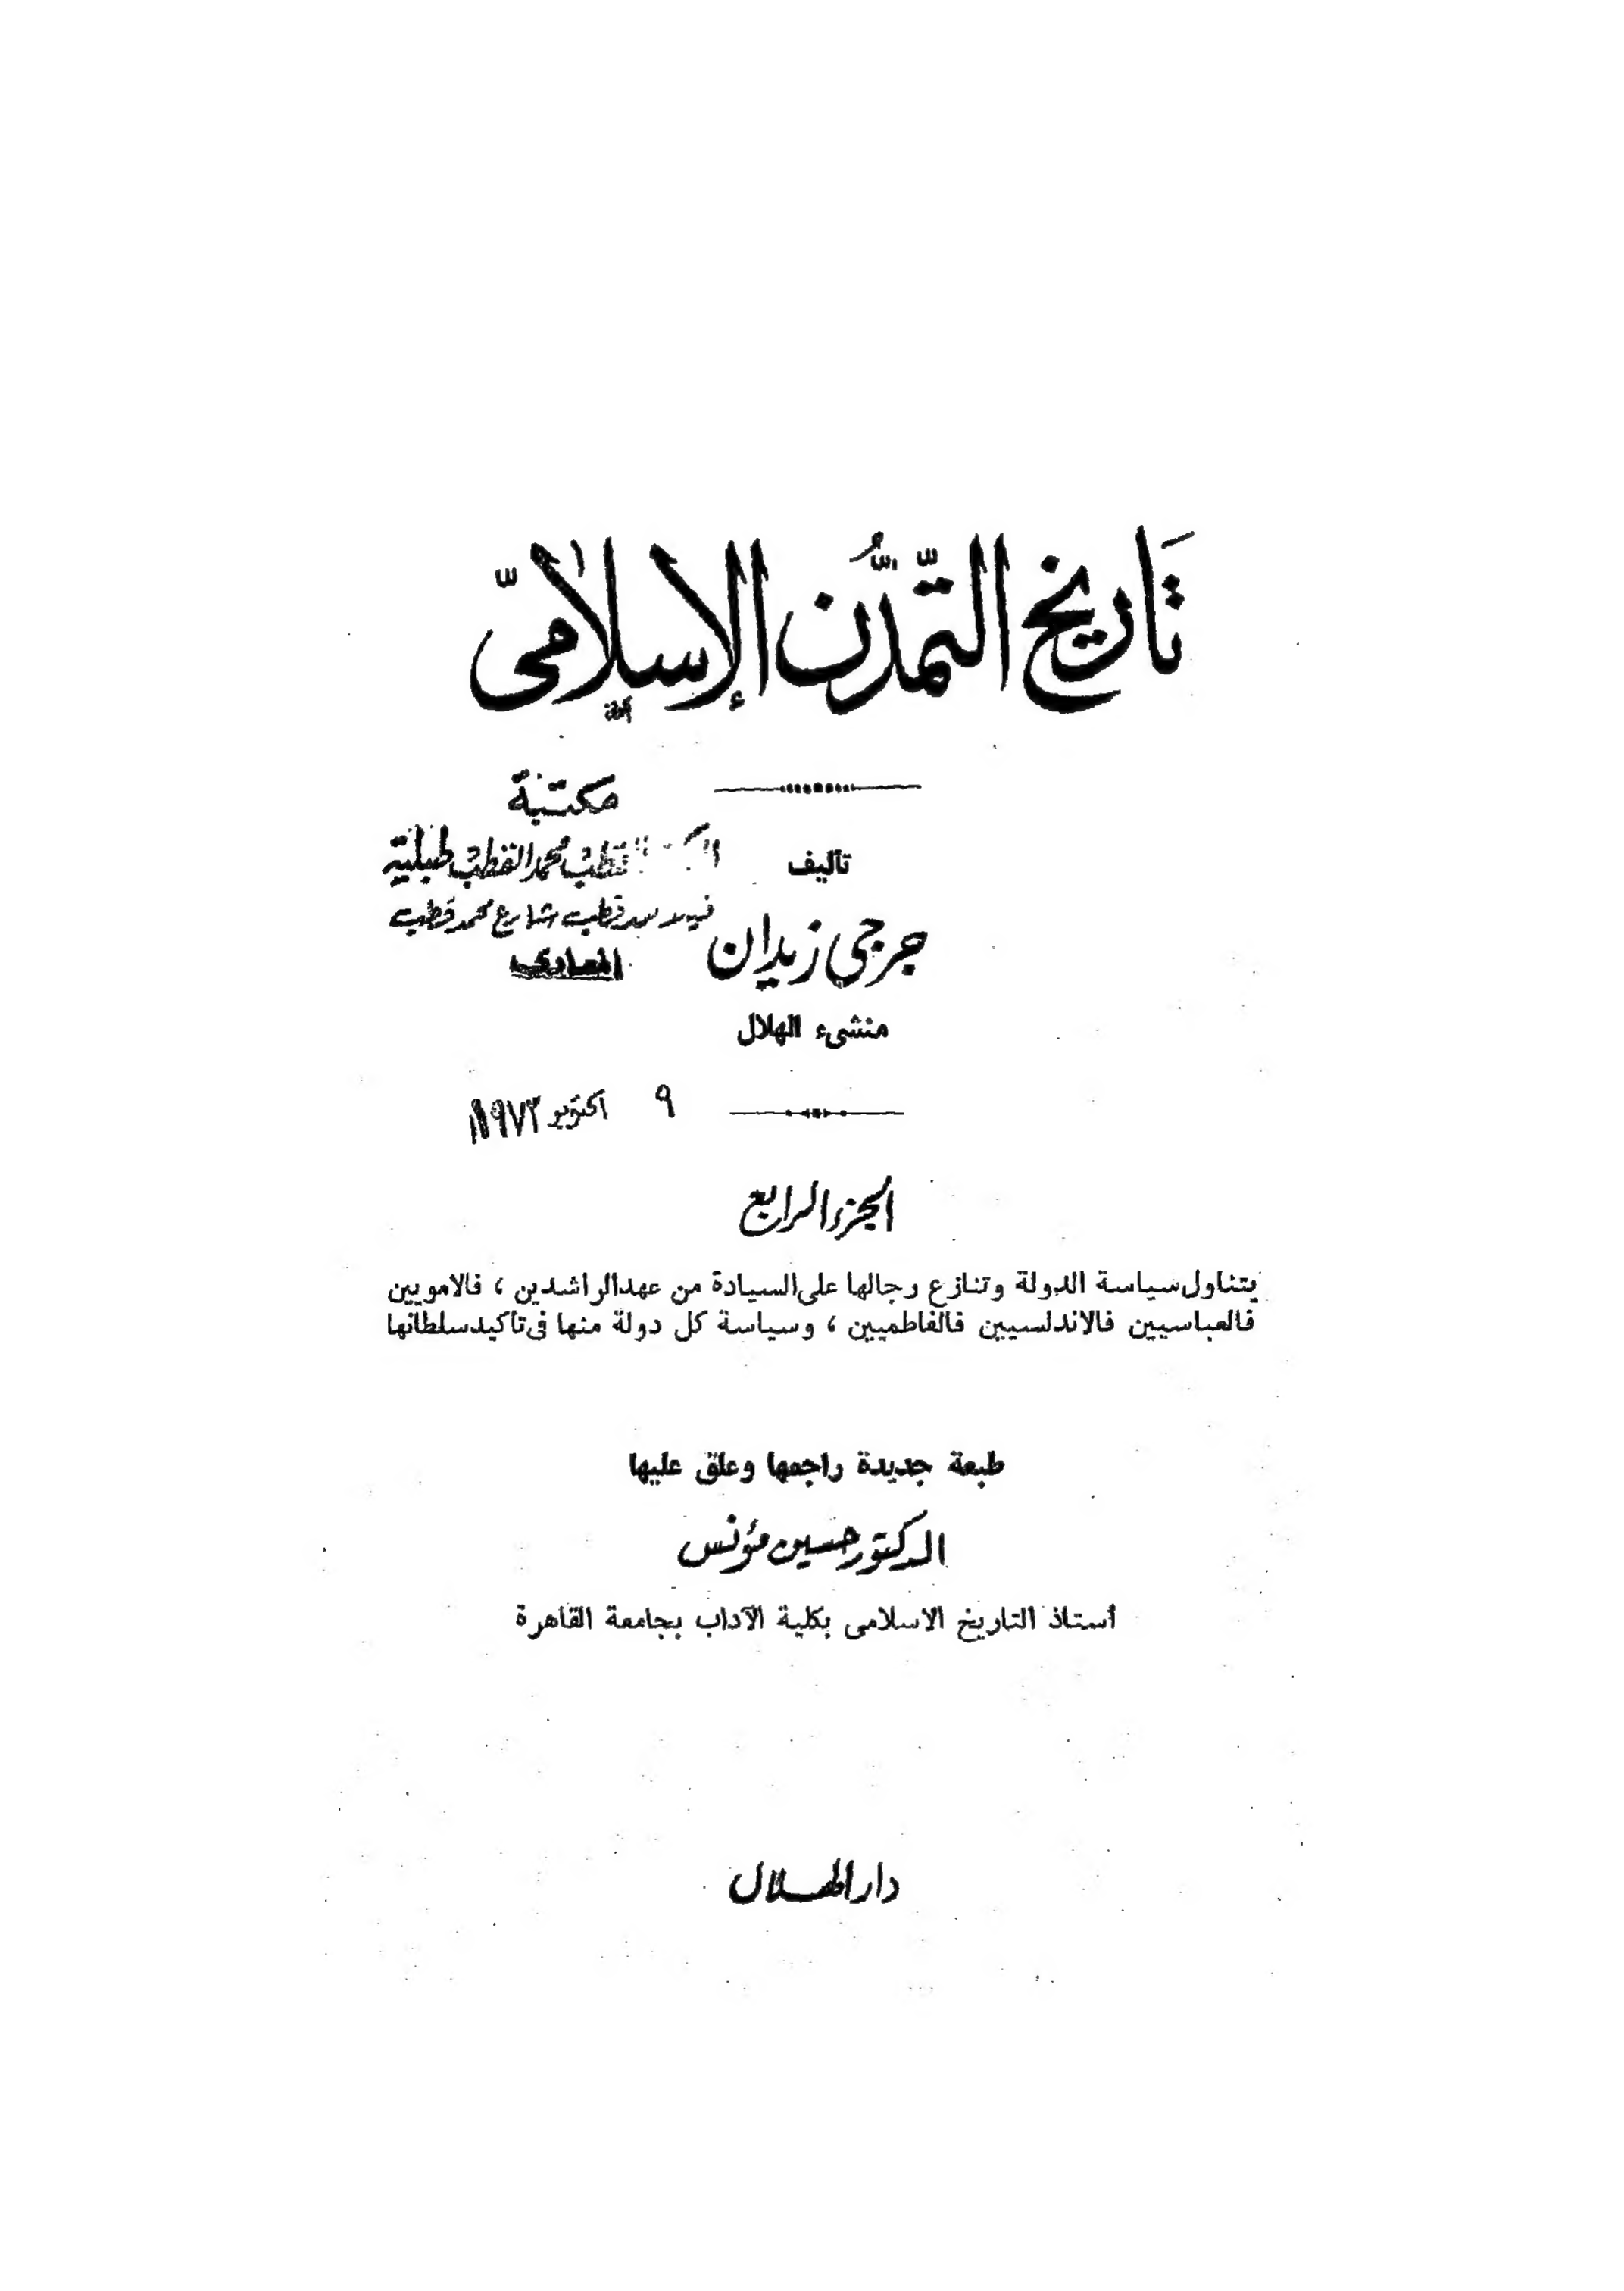 تَاريخ التّمدُّن الإسلامىّ
مكتبة
القطب محمد القطب طبلية
قطب شارع محمد قطب
المعادى
تأليف
جرجى زيدان
منشىء الهلال
٩ اكتوبر ١٩٧٣
الجزء الرابع
يتناول سياسة الدولة وتنازع رجالها على السيادة من عهد الراشدين ، فالامويين
فالعباسيين فالاندلسيين فالفاطميين ، وسياسة كل دولة منها فى تأكيد سلطانها
طبعة جديدة راجعها وعلق عليها
الدكتور حسين مؤنس
أستاذ التاريخ الاسلامى بكلية الآداب بجامعة القاهرة
دار الهلال